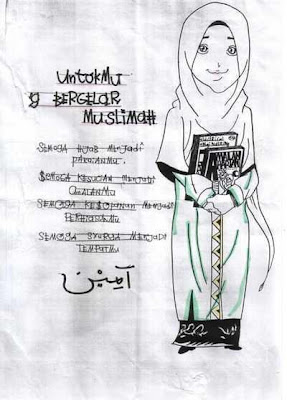 UntukMu
y BERGELAR
MUSLIMAH
SEMOGA HIJAB MENJADI
PAKAIANMU
SEMOGA KESUCIAN MENJADI
SEMOGA KESOPANAN MENJADI
PERHIASANMU
SEMOGA SYURGA MENJADI
TEMPATMU
آمِيْن